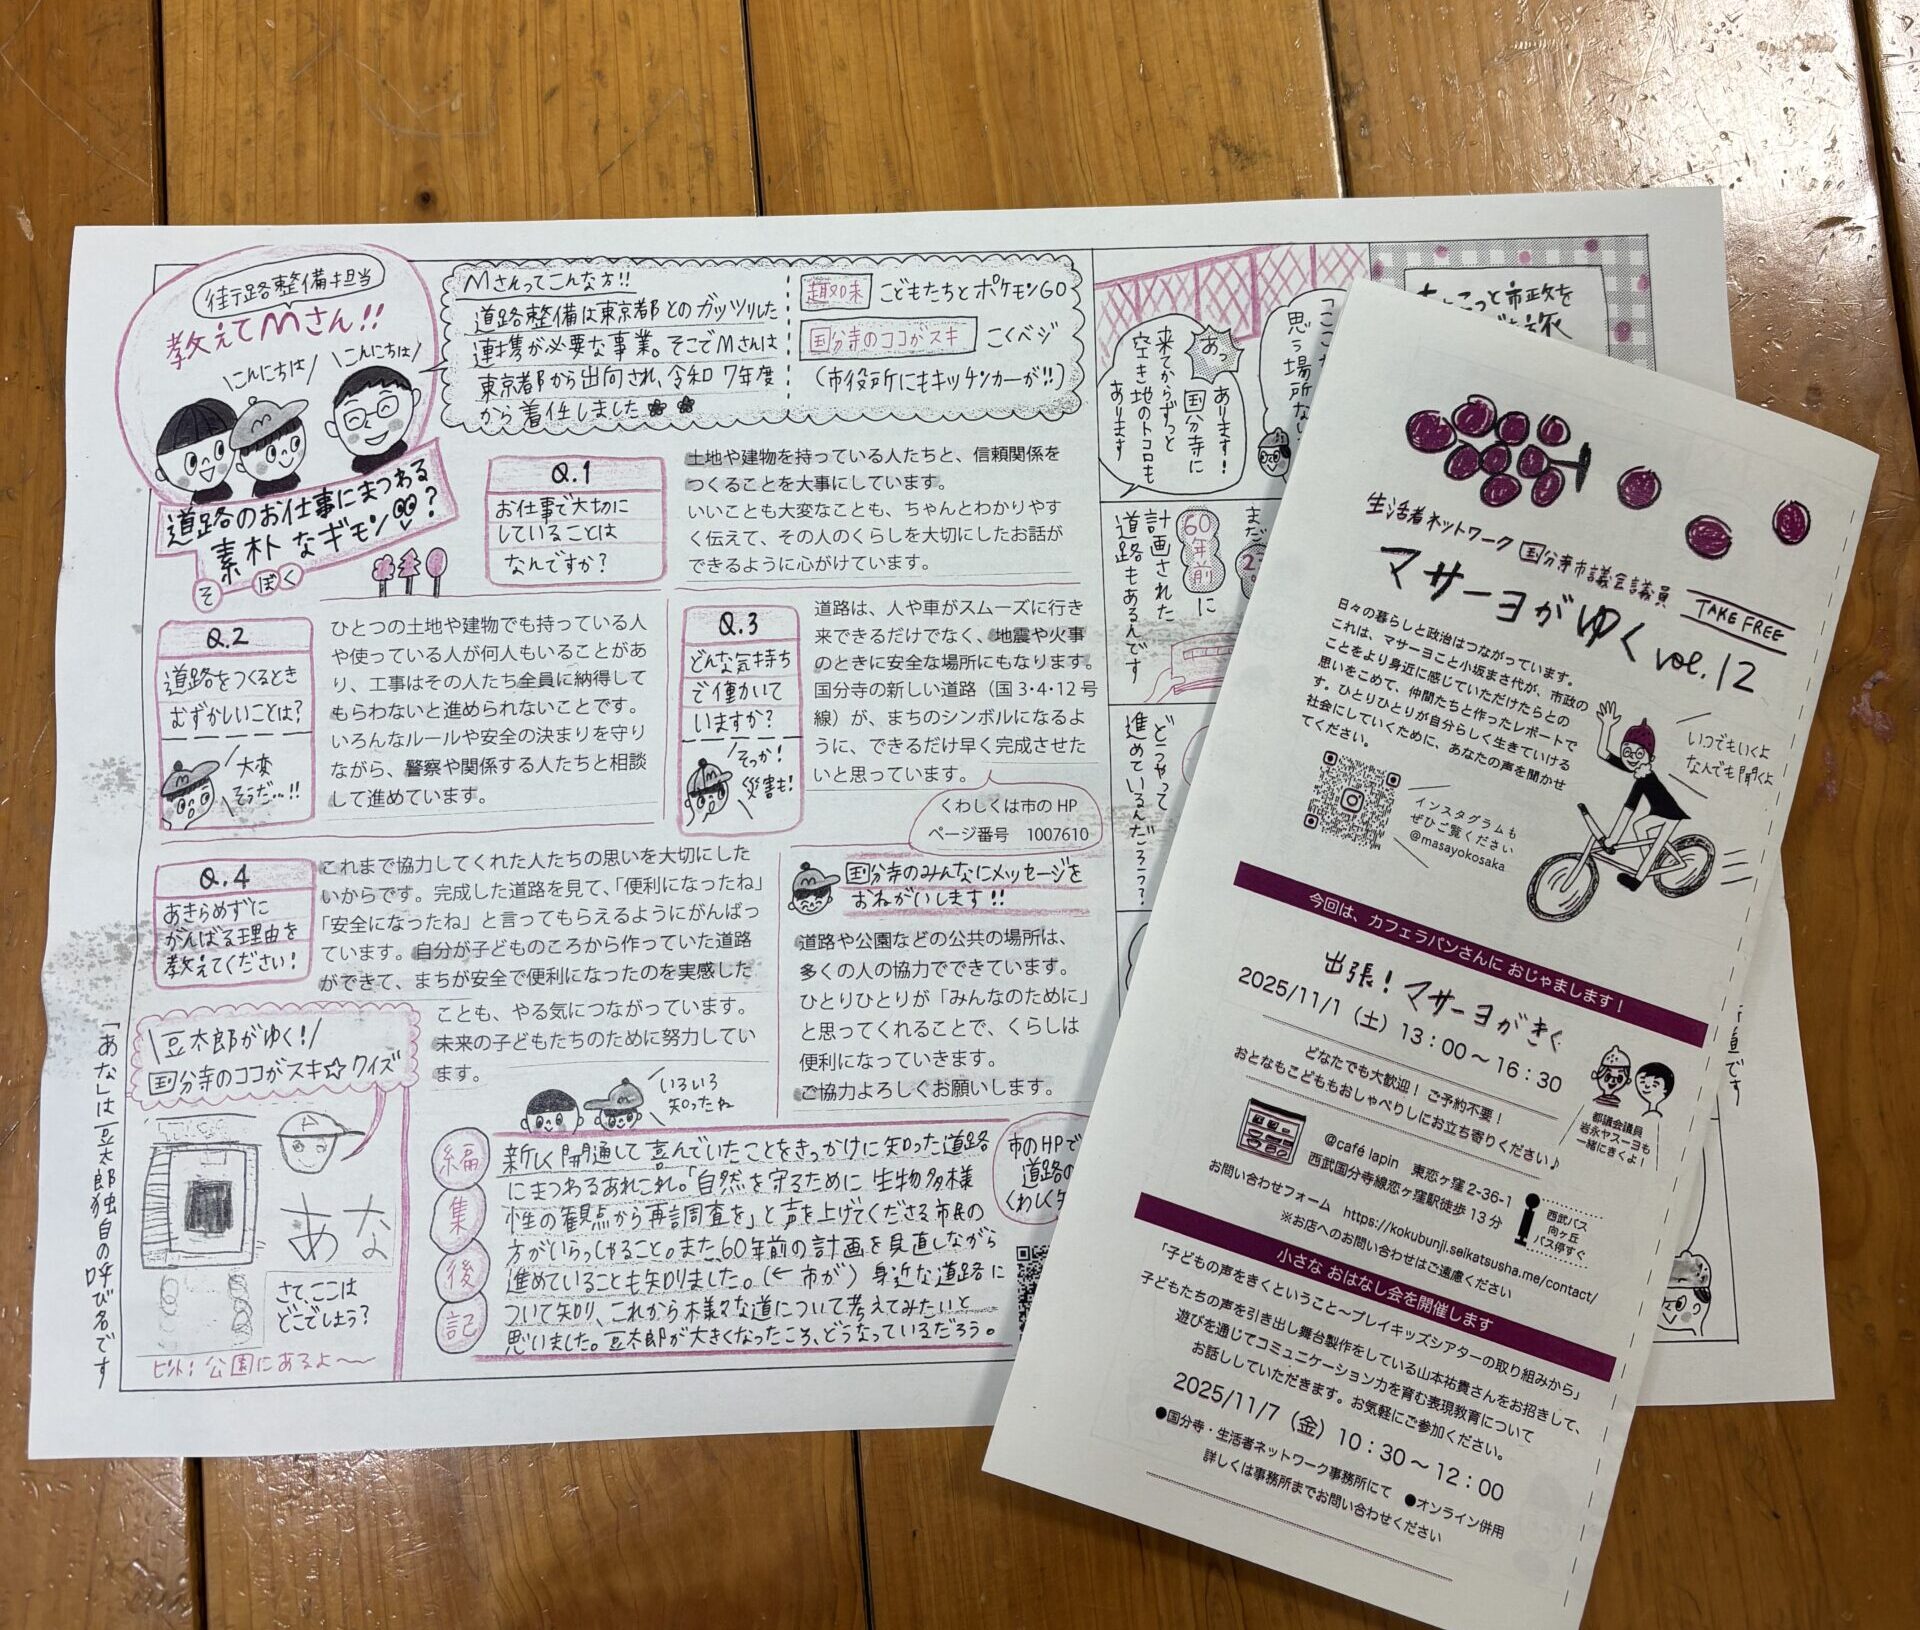 街路整備担当
教えてMさん!!
\こんにちは/
\こんにちは/
道路のお仕事にまつわる
素朴なギモン?
そぼく
Mさんってこんな方!!
道路整備は東京都とのガッツリした
連携が必要な事業。そこでMさんは
東京都から出向され、令和7年度
から着任しました
趣味 こどもたちとポケモンGO
国分寺のココがスキ こくベジ
(市役所にもキッチンカーが!!)
Q.1
お仕事で大切に
していることは
なんですか?
土地や建物を持っている人たちと、信頼関係を
つくることを大事にしています。
いいことも大変なことも、ちゃんとわかりやす
く伝えて、その人のくらしを大切にしたお話が
できるように心がけています。
Q.2
道路をつくるとき
むずかしいことは?
大変
そうだ…!!
ひとつの土地や建物でも持っている人
や使っている人が何人もいることがあ
り、工事はその人たち全員に納得して
もらわないと進められないことです。
いろんなルールや安全の決まりを守り
ながら、警察や関係する人たちと相談
して進めています。
Q.3
どんな気持ち
で働いて
いますか?
そっか!
災害も!
道路は、人や車がスムーズに行き
来できるだけでなく、地震や火事
のときに安全な場所にもなります。
国分寺の新しい道路（国3・4・12号
線）が、まちのシンボルになるよ
うに、できるだけ早く完成させた
いと思っています。
くわしくは市のHP
ページ番号 1007610
Q.4
あきらめずに
がんばる理由を
教えてください!
これまで協力してくれた人たちの思いを大切にした
いからです。完成した道路を見て、「便利になったね」
「安全になったね」と言ってもらえるようにがんばっ
ています。自分が子どものころから作っていた道路
ができて、まちが安全で便利になったのを実感した
ことも、やる気につながっています。
未来の子どもたちのために努力してい
ます。
国分寺のみんなにメッセージを
おねがいします!!
道路や公園などの公共の場所は、
多くの人の協力でできています。
ひとりひとりが「みんなのために」
と思ってくれることで、くらしは
便利になっていきます。
ご協力よろしくお願いします。
\豆太郎がゆく!/
国分寺のココがスキ☆クイズ
あな
さて、ここは
どこでしょう?
ヒント:公園にあるよ〜
「あな」は豆太郎独自の呼び名です
いろいろ
知ったね
編集後記
新しく開通して喜んでいたことをきっかけに知った道路
にまつわるあれこれ。「自然を守るために生物多様
性の観点から再調査を」と声を上げてくださる市民の
方がいらっしゃること。また、60年前の計画を見直しながら
進めていることも知りました。(←市が)身近な道路に
ついて知り、これから様々な道について考えてみたいと
思いました。豆太郎が大きくなったころ、どうなっているだろう。
市のHPで
道路の
くわしく
ちょこっと市政を
思う場所ない
あっ
あります!
国分寺に
来てからずっと
空き地のトコロも
あります
まだ
60年前に
計画された
道路もあるんです
どうやって
進めているんだろう?
です
生活者ネットワーク 国分寺市議会議員
マサーヨがゆく vol.12
TAKE FREE
日々の暮らしと政治はつながっています。
これは、マサーヨこと小坂まさ代が、市政の
ことをより身近に感じていただけたらとの
思いをこめて、仲間たちと作ったレポートで
す。ひとりひとりが自分らしく生きていける
社会にしていくために、あなたの声を聞かせ
てください。
いつでもいくよ
なんでも聞くよ
インスタグラムも
ぜひご覧ください
@masayokosaka
今回は、カフェラパンさんに おじゃまします！
出張! マサーヨがきく
2025/11/1（土）13：00〜16：30
どなたでも大歓迎！ ご予約不要！
おとなもこどももおしゃべりしにお立ち寄りください♪
都議会議員
岩永ヤスーヨも
一緒にきくよ！
@café lapin 東恋ヶ窪2-36-1
西武国分寺線恋ヶ窪駅徒歩13分
西武バス
向ヶ丘
バス停すぐ
お問い合わせフォーム https://kokubunji.seikatsusha.me/contact/
※お店へのお問い合わせはご遠慮ください
小さな おはなし会を開催します
「子どもの声をきくということ〜プレイキッズシアターの取り組みから」
子どもたちの声を引き出し舞台製作をしている山本祐貴さんをお招きして、
遊びを通じてコミュニケーション力を育む表現教育について
お話ししていただきます。お気軽にご参加ください。
2025/11/7（金）10：30〜12：00
●国分寺・生活者ネットワーク事務所にて ●オンライン併用
詳しくは事務所までお問い合わせください